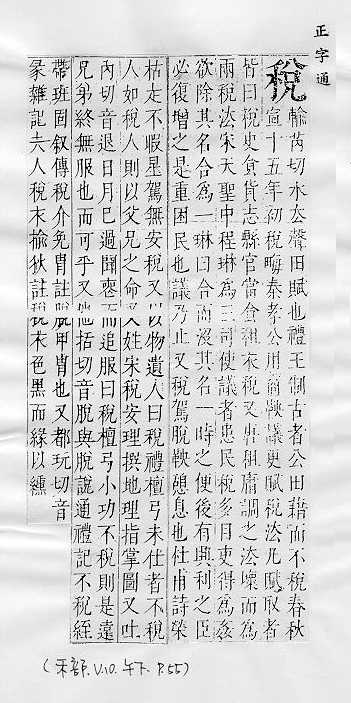 正字通
稅
輸芮切水去聲田賦也禮王制古者公田藉而不稅春秋
宣十五年初稅畮秦孝公用商鞅議更賦稅法凡賦取者
皆曰稅史食貨志縣官當食租衣稅又唐租庸調之法壞而為
兩稅法宋天聖中程琳為三司使議者患民稅多目吏得為姦
欲除其名合為一琳曰合而沒其名一時之便後有興利之臣
必復增之是重困民也議乃止又稅駕脫鞅憩息也杜甫詩榮
枯走不暇星駕無安稅又以物遺人曰稅禮檀弓未仕者不稅
人如稅人則以父兄之命又姓宋稅安理撰地理指掌圖又吐
內切音退日月已過聞喪而追服曰稅檀弓小功不稅則是遠
兄弟終無服也而可乎又他括切音脫與脫說通禮記不稅絰
帶班固敘傳稅介免冑註脫甲冑也又都玩切音
彖雜記夫人稅衣揄狄註稅衣色黑而緣以纁
(禾部.V.10.午下.P.55)